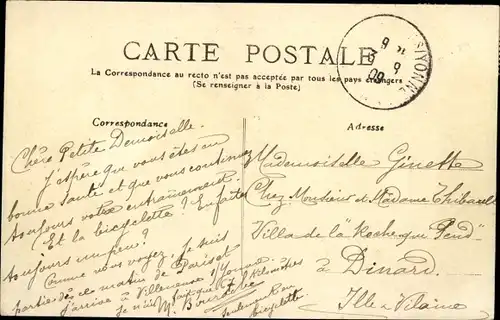 CARTE POSTALE
La Correspondance au recto n'est pas acceptée par tous les pays étrangers
(Se renseigner à la Poste)
Correspondance
Chère Petite Demoiselle.
J'espère que vous êtes en
bonne santé et que vous continuez
toujours votre entraînement.
Et la bicyclette? En faites
toujours un peu?
Comme vous voyez, je suis
partie dès ce matin de Paris et
j'arrive à Villeneuve s/ Yonne
M. Bourdebe
bicyclette
Adresse
Mademoiselle Ginette
Chez Monsieur et Madame Thibault
Villa de la "Roche qui Pend"
à Dinard.
Ille & Vilaine